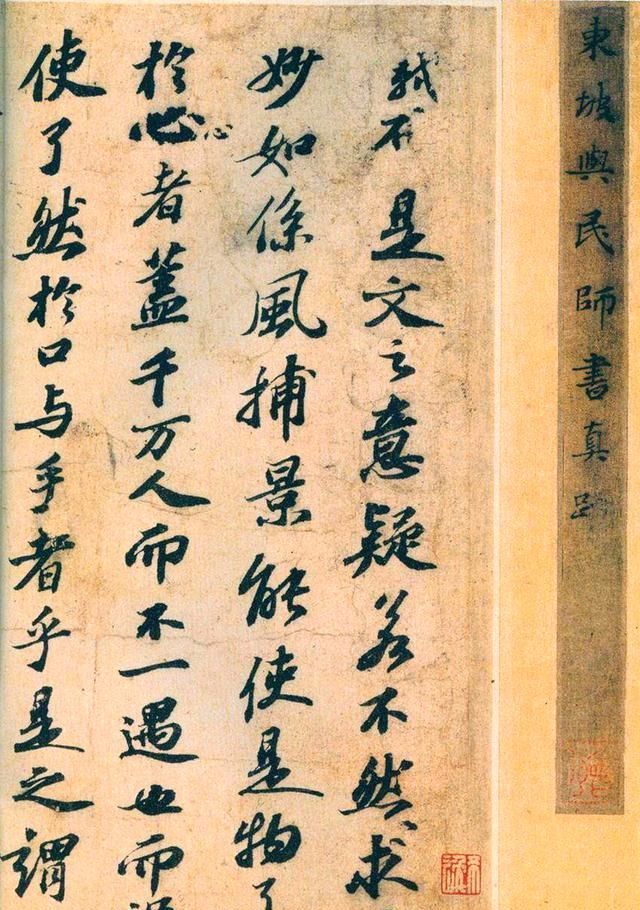 東坡與民師書真
軾不是文之意疑若不然求
妙如係風捕景能使是物了
於心心者蓋千万人而不一遇也而
使了然於口与手者乎是之謂